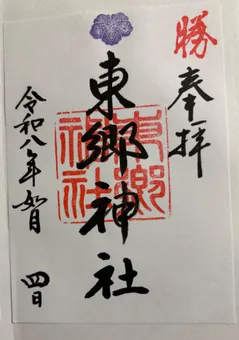 勝
奉拝
東郷神社
東郷神社
令和八年如月
四日